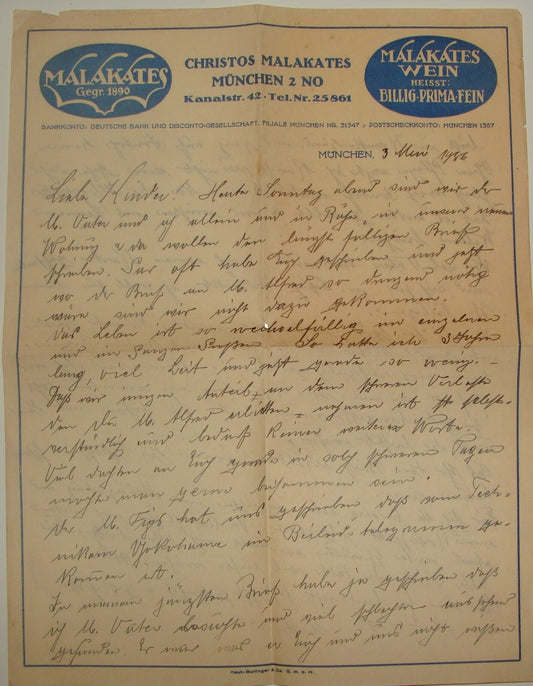 MALAKATES
Gegr. 1890
CHRISTOS MALAKATES
MÜNCHEN 2 NO
Kanalstr. 42 · Tel. Nr. 25861
MALAKATES
WEIN
HEISST:
BILLIG·PRIMA·FEIN
BANKKONTO: DEUTSCHE BANK UND DISCONTO-GESELLSCHAFT, FILIALE MÜNCHEN NR. 31347 / POSTSCHECKKONTO: MÜNCHEN 1367
MÜNCHEN, 3 Mai
Liebe Kinder. Heute Sonntag abend sind wir der
lb. Vater und ich allein und in Ruhe in unserer neuen
Wohnung & da wollen den längst fälligen Brief
schreiben. Sehr oft habe Euch geschrieben und jetzt
wo der Brief an lb. Alfred so dringend nötig
wäre sind wir nicht dazu gekommen.
Das Leben ist so wechselfällig im einzelnen
und im Ganzen Großen. So hatte ich 3 Jahre
lang viel Zeit und jetzt gerade so wenig.
Daß wir innigen Anteil an dem schweren Verluste
den Du lb. Alfred erlitten nehmen ist selbst-
verständlich und bedarf keiner weiteren Worte.
Viel dachten an Euch gerade in solch schweren Tagen
möchte man gerne beisammen sein.
Der lb. Fips hat uns geschrieben, daß vom Tech-
nikum Yokohama ein Beileidstelegramm ge-
kommen ist.
In meinem jüngsten Brief habe ja geschrieben daß
ich lb. Vater besuchte und viel schlechter aussehend
gefunden. Er war was er Euch und uns nicht
Kaut-Bullinger & Co. G. m. b. H.